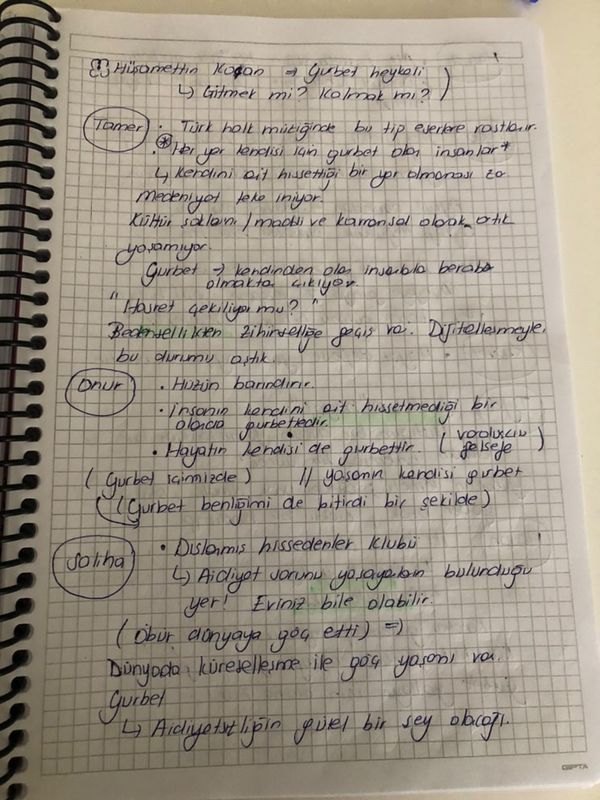 Hüsamettin Koçan → Gurbet heykeli )
↳ Gitmek mi? Kalmak mı? )
Tamer • Türk halk müziğinde bu tip eserlere rastlanır.
• Her yer kendisi için gurbet olan insanlar *
↳ Kendini ait hissettiği bir yer olmaması
Medeniyet teke iniyor.
Kültür / maddi ve kavramsal olarak artık
yaşamıyor.
Gurbet → kendinden olan insanlarla beraber
olmaktan çıkıyor.
"Hasret çekiliyor mu?"
Bedensellikten zihinselliğe geçiş var. Dijitalleşmeyle,
bu durumu aştık.
Onur • Hüzün barındırır.
• İnsanın kendini ait hissetmediği bir
alanda gurbettedir.
• Hayatın kendisi de gurbettir. ( varoluşçu felsefe )
( Gurbet içimizde ) // yaşamın kendisi gurbet
( Gurbet benliğimi de bitirdi bir şekilde )
Saliha • Dışlanmış hissedenler klubü
↳ Aidiyet sorunu yaşayanların bulunduğu
yer! Eviniz bile olabilir.
( Öbür dünyaya göç etti ) =>
Dünyada küreselleşme ile göç yaşamı var.
Gurbet
↳ Aidiyetsizliğin güzel bir şey olacağı.
GIPTA